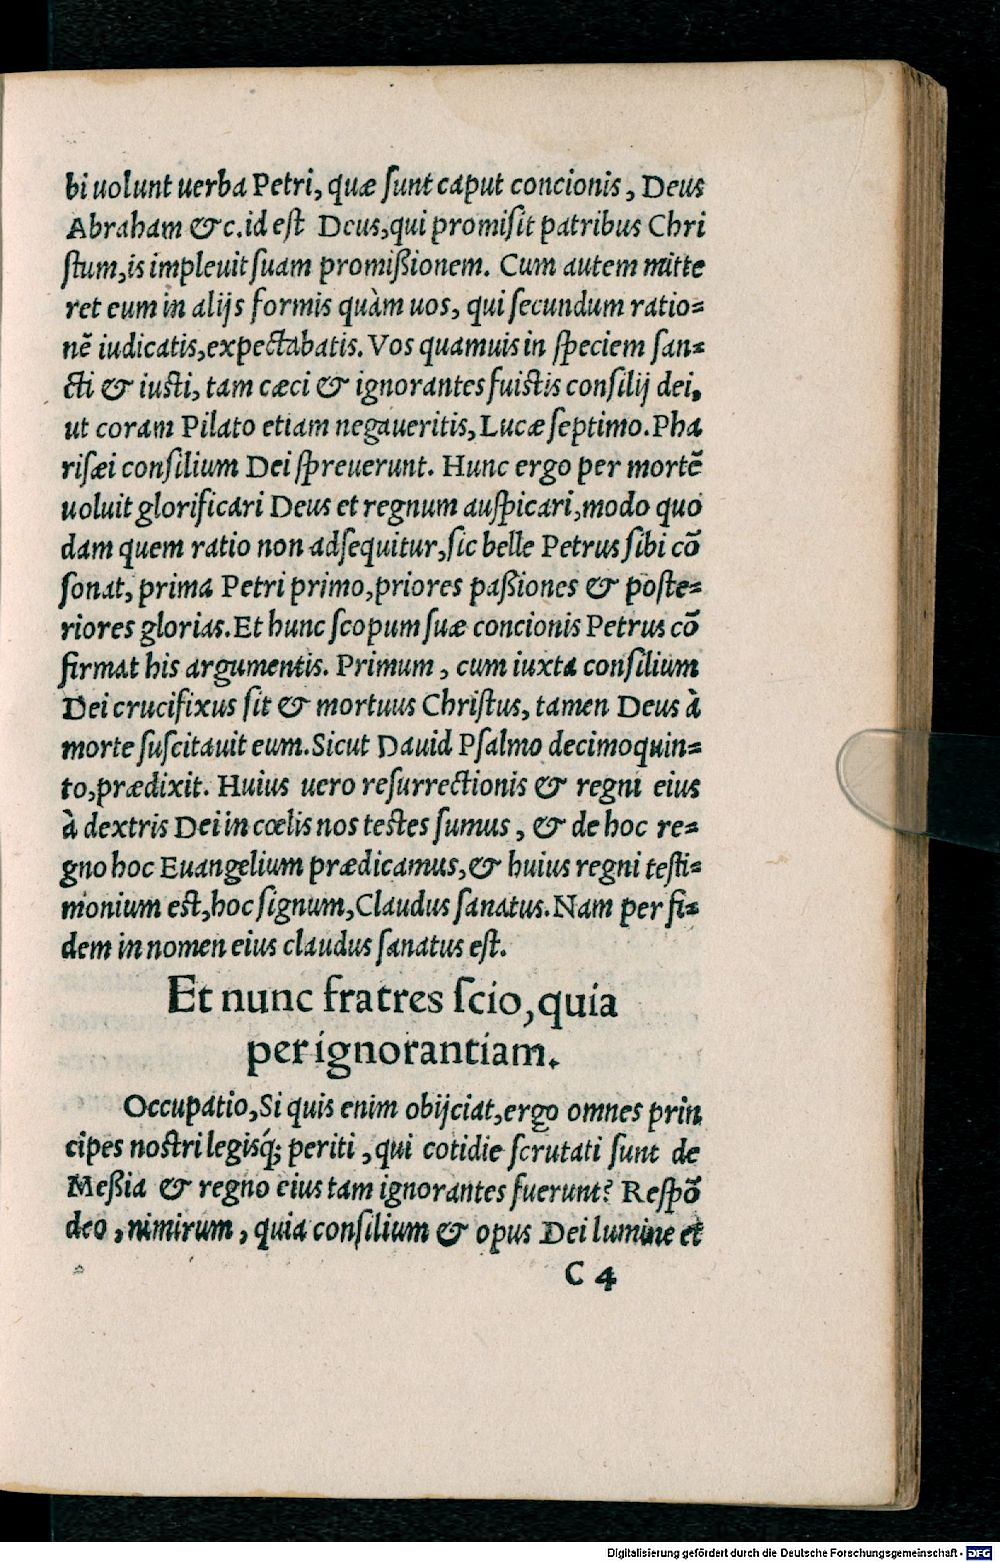 bi uolunt uerba Petri, quæ sunt caput concionis, Deus
Abraham & c. id est Deus, qui promisit patribus Chri
stum, is impleuit suam promißionem. Cum autem mitte
ret eum in alijs formis quàm uos, qui secundum ratio=
nẽ iudicatis, expectabatis. Vos quamuis in speciem san=
cti & iusti, tam cæci & ignorantes fuistis consilij dei,
ut coram Pilato etiam negaueritis, Lucæ septimo. Pha
risæi consilium Dei spreuerunt. Hunc ergo per mortẽ
uoluit glorificari Deus et regnum auspicari, modo quo
dam quem ratio non adsequitur, sic belle Petrus sibi cõ
sonat, prima Petri primo, priores paßiones & poste=
riores glorias. Et hunc scopum suæ concionis Petrus cõ
firmat his argumentis. Primum, cum iuxta consilium
Dei crucifixus sit & mortuus Christus, tamen Deus à
morte suscitauit eum. Sicut Dauid Psalmo decimoquin=
to, prædixit. Huius uero resurrectionis & regni eius
à dextris Dei in cœlis nos testes sumus, & de hoc re=
gno hoc Euangelium prædicamus, & huius regni testi=
monium est, hoc signum, Claudus sanatus. Nam per fi=
dem in nomen eius claudus sanatus est.
Et nunc fratres scio, quia
per ignorantiam.
Occupatio, Si quis enim obijciat, ergo omnes prin
cipes nostri legisq́; periti, qui cotidie scrutati sunt de
Meßia & regno eius tam ignorantes fuerunt? Respõ
deo, nimirum, quia consilium & opus Dei lumine et
C 4
Digitalisierung gefördert durch die Deutsche Forschungsgemeinschaft - DFG